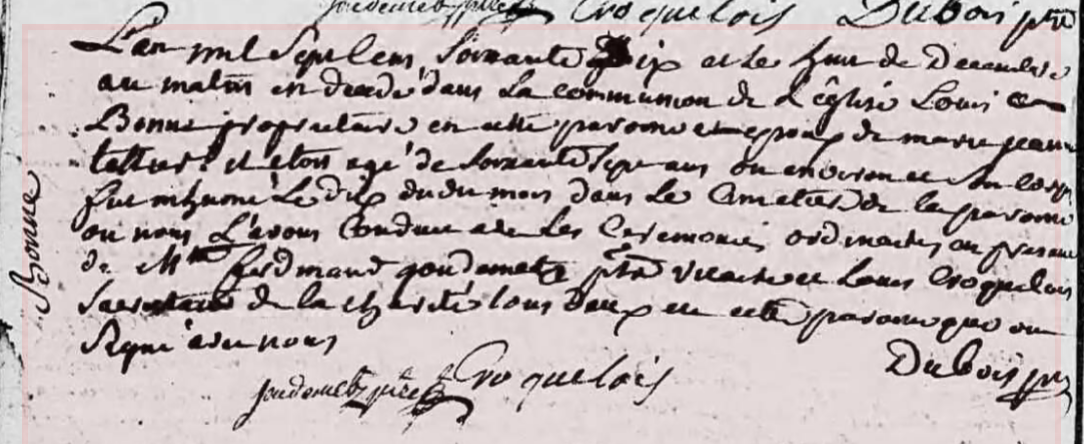 goudemetz ptre Croquelois Dubois ptre
L'an mil sept cens soixante dix et le huit de decembre
au matin en decedé dans la communion de L'église Louis
Bonne proprietaire en cette paroisse et epoux de marie jeanne
et etoit agé de soixante sept ans ou environ et son corps
fut inhumé Le dix dudit mois dans Le Cimetiere de la paroisse
ou nous L'avons Conduit avec Les Ceremonies ordinaires en presence
de Mtre ferdinand goudemetz ptre vicaire et Louis Croquelois
de la charité tous deux en cette paroisse qui ont
Signé avec nous
Bonne
goudemetz ptre Croquelois Dubois ptre